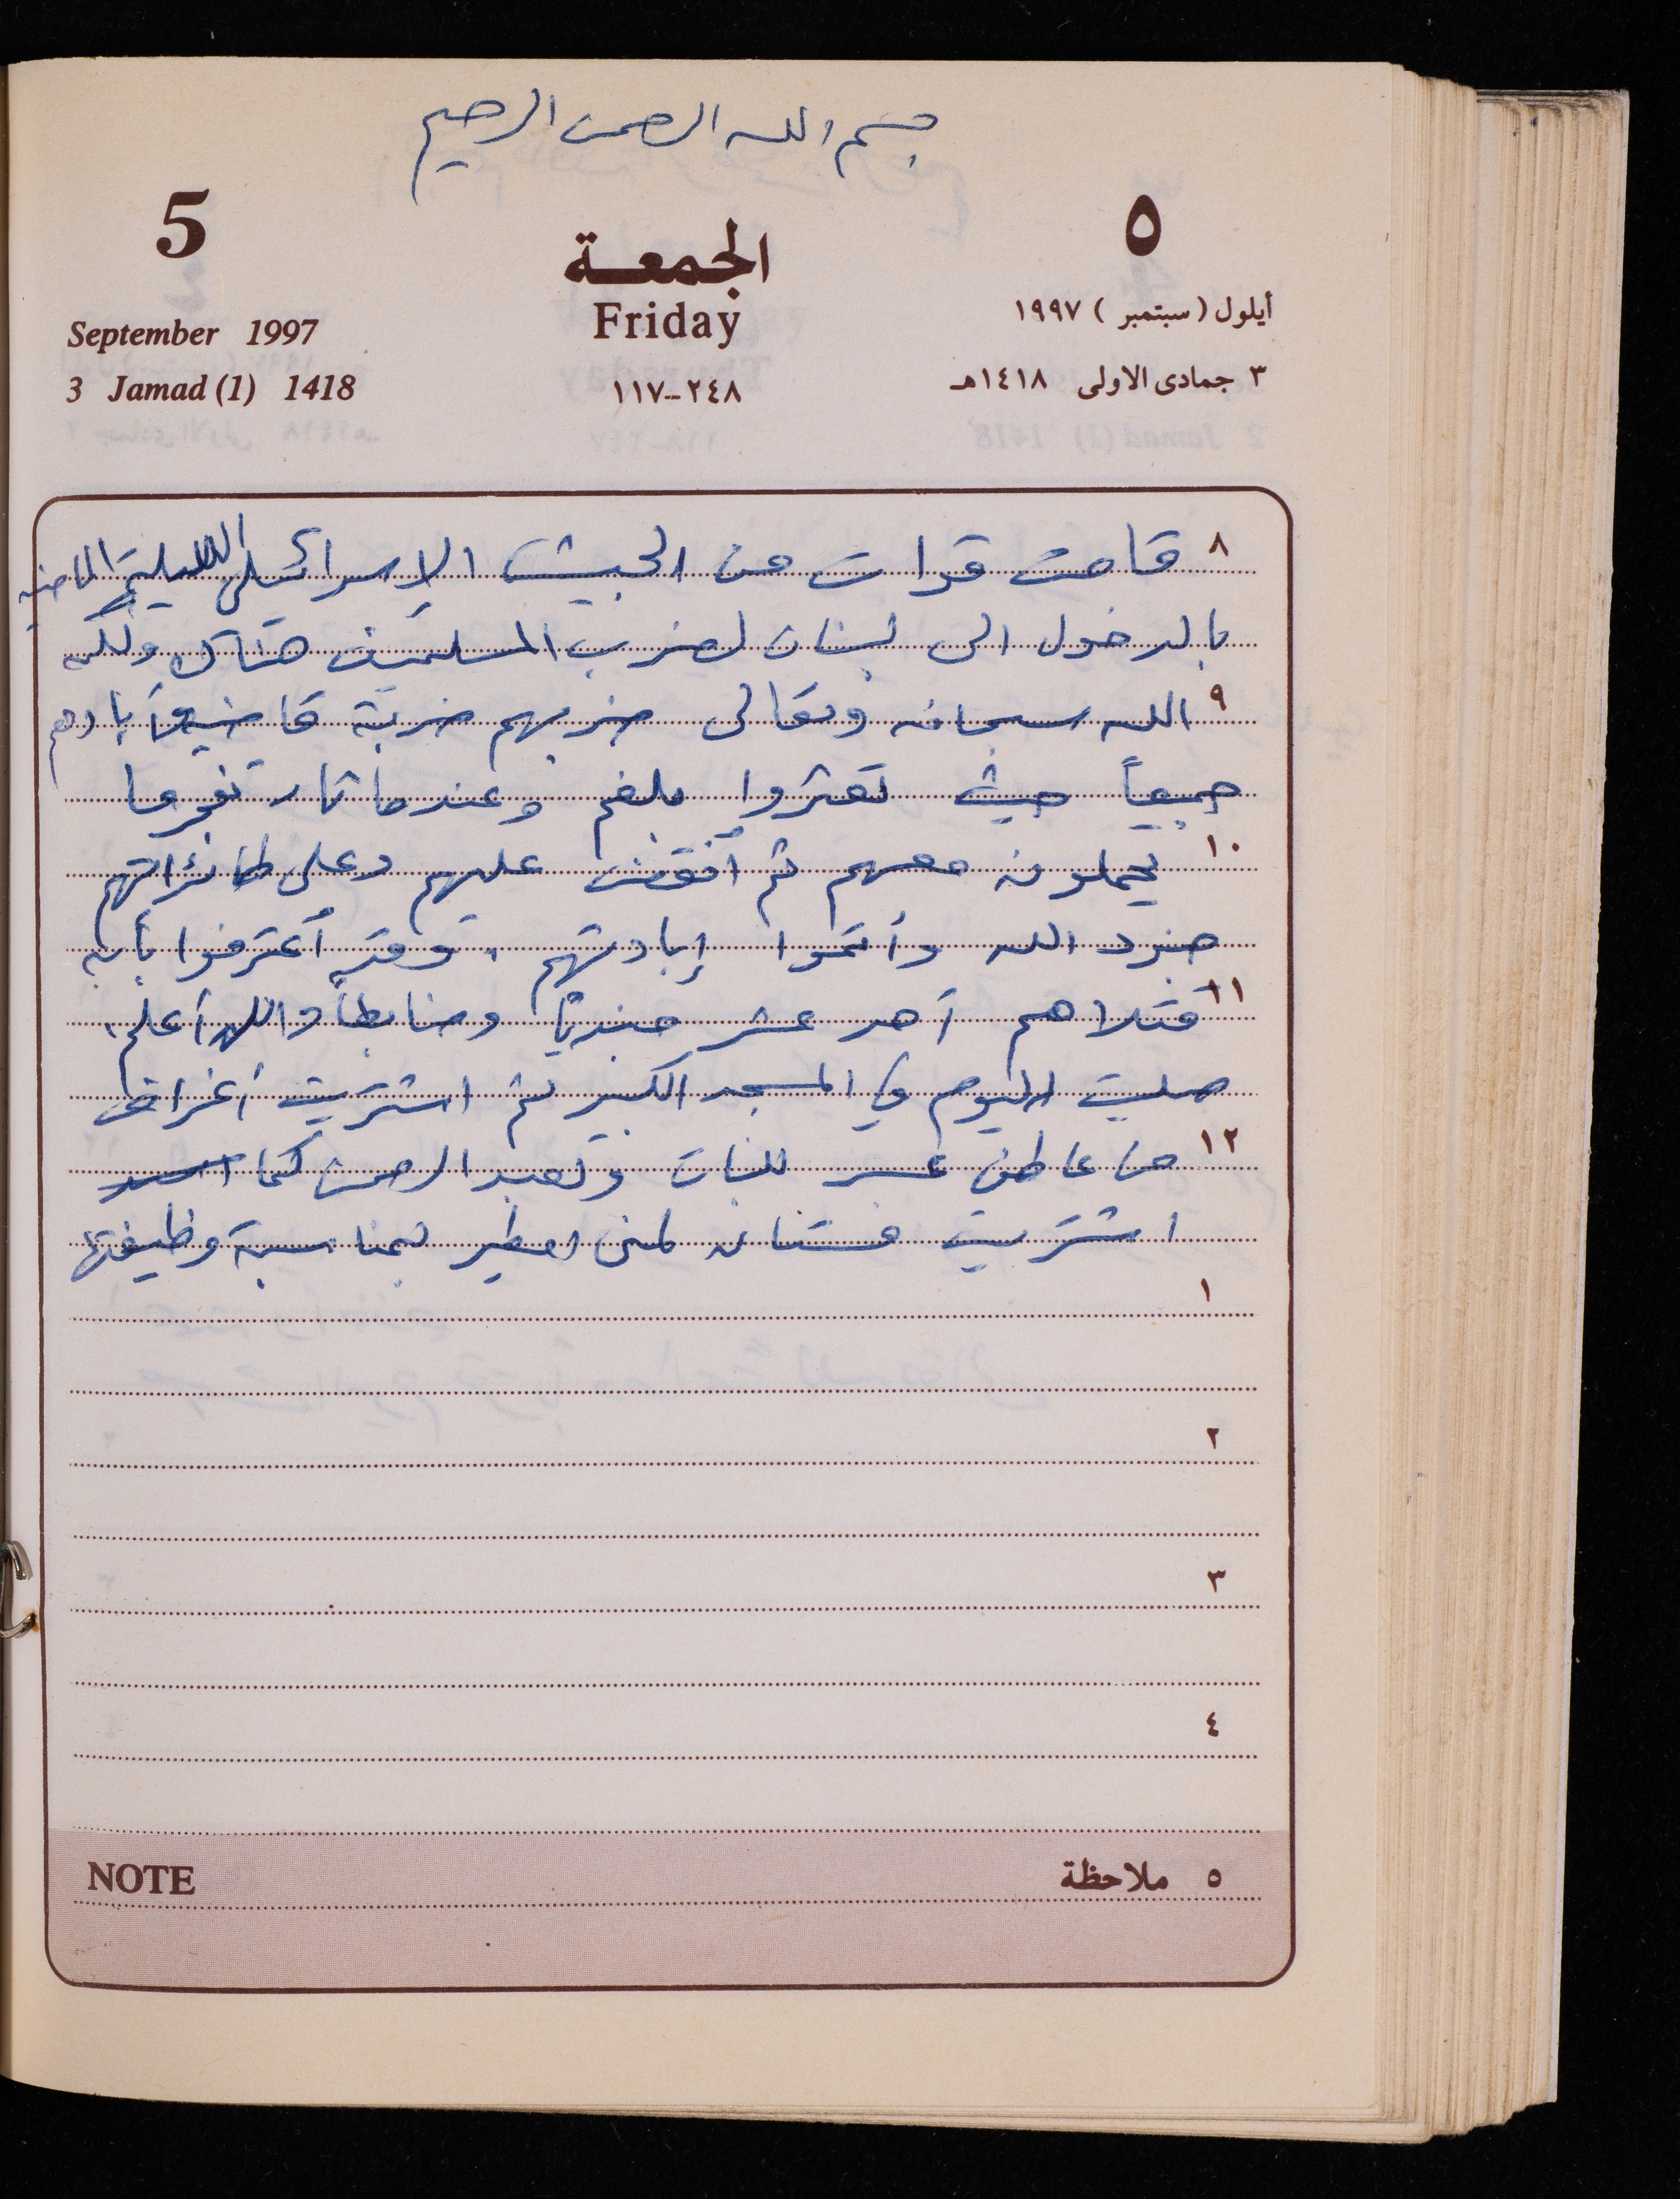 بسم الله الرحمن الرحيم
5 الجمعة ٥
Friday
September 1997 أيلول (سبتمبر) ١٩٩٧
3 Jamad (1) 1418 ٢٤٨-١١٧ ٣ جمادى الاولى ١٤١٨هـ
٨ قامت قوات من الجيش الإسرائيلي الليلة الماضية
بالدخول الى لبنان لضرب المسلمين هناك ولكن
٩ الله سبحانه وتعالى ضربهم ضربة أبادهم
جميعاً حيث تعثروا بلغم وعندما ثار تفجر ما
١٠ يحملونه معهم ثم أنقض عليهم وعلى طائراتهم
جنود الله وأتموا إبادتهم. وقد أعترفوا بأن
١١ قتلاهم أحد عشر جندياً وضابطاً والله أعلم.
صليت اليوم في المسجد الكبير ثم اشتريت أغراض
١٢ من للبنات ولعبد الرحمن كما
اشتريت فستان لمنى بمناسبة وظيفتها
١
٢
٣
٤
NOTE ٥ ملاحظة